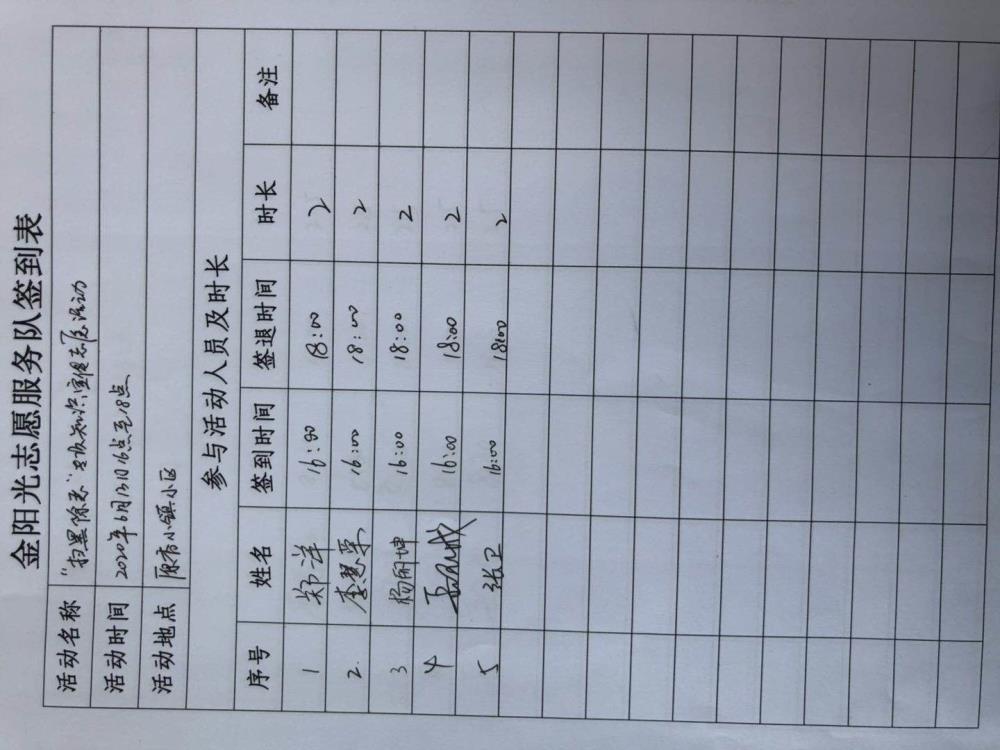 金阳光志愿服务队签到表
活动名称 "扫黑除恶"知识宣传志愿活动
活动时间 2020年6月13日16点至18点
活动地点 小镇小区
参与活动人员及时长
序号 姓名 签到时间 签退时间 时长 备注
1 郑洋 16:00 18:00 2
2. 李慧荣 16:00 18:00 2
3 杨丽坤 16:00 18:00 2
4 16:00 18:00 2
5 张卫 16:00 18:00 2